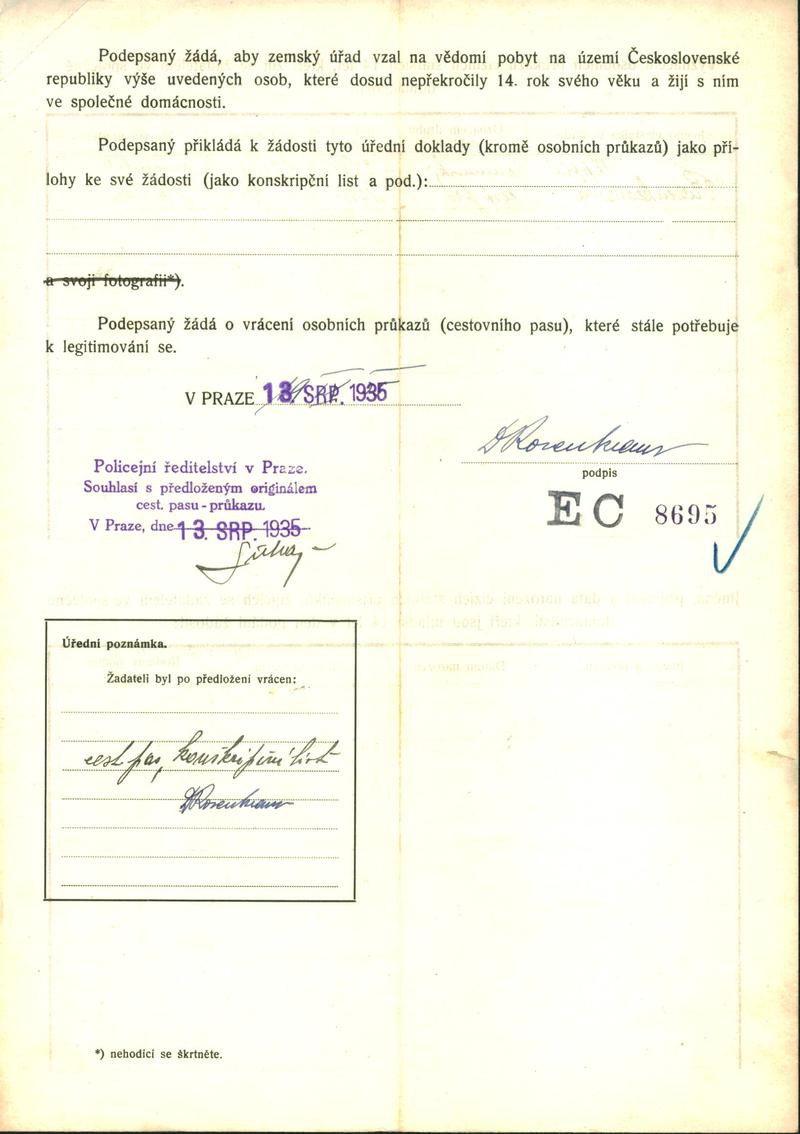 Podepsaný žádá, aby zemský úřad vzal na vědomí pobyt na území Československé
republiky výše uvedených osob, které dosud nepřekročily 14. rok svého věku a žijí s ním
ve společné domácnosti.
Podepsaný přikládá k žádosti tyto úřední doklady (kromě osobních průkazů) jako pří-
lohy ke své žádosti (jako konskripční list a pod.):
a svoji fotografii*).
Podepsaný žádá o vrácení osobních průkazů (cestovního pasu), které stále potřebuje
k legitimování se.
V PRAZE 13. SRP. 1935
DRosenkranz
podpis
EC 8695
Policejní ředitelství v Praze.
Souhlasí s předloženým originálem
cest. pasu - průkazu.
V Praze, dne 13. SRP. 1935
Úřední poznámka.
Žadateli byl po předložení vrácen:
cest pas, konskripční list
DRosenkranz
*) nehodící se škrtněte.